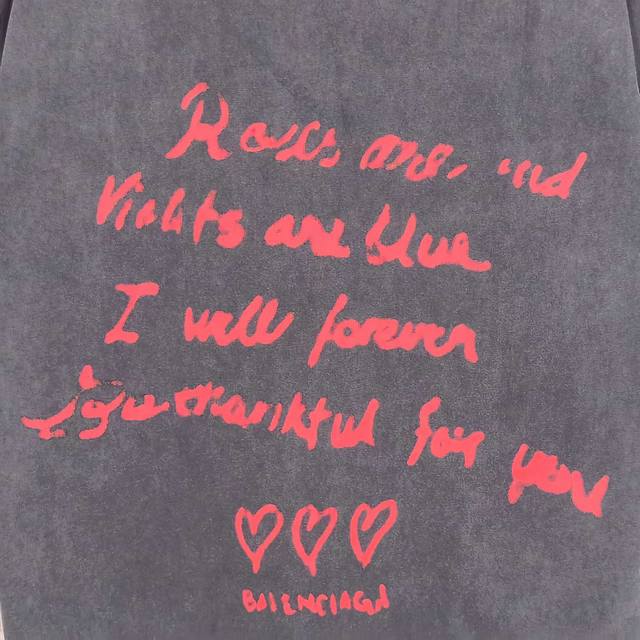 Roses are
Violets are blue
I will forever
thankful for you
BALENCIAGA